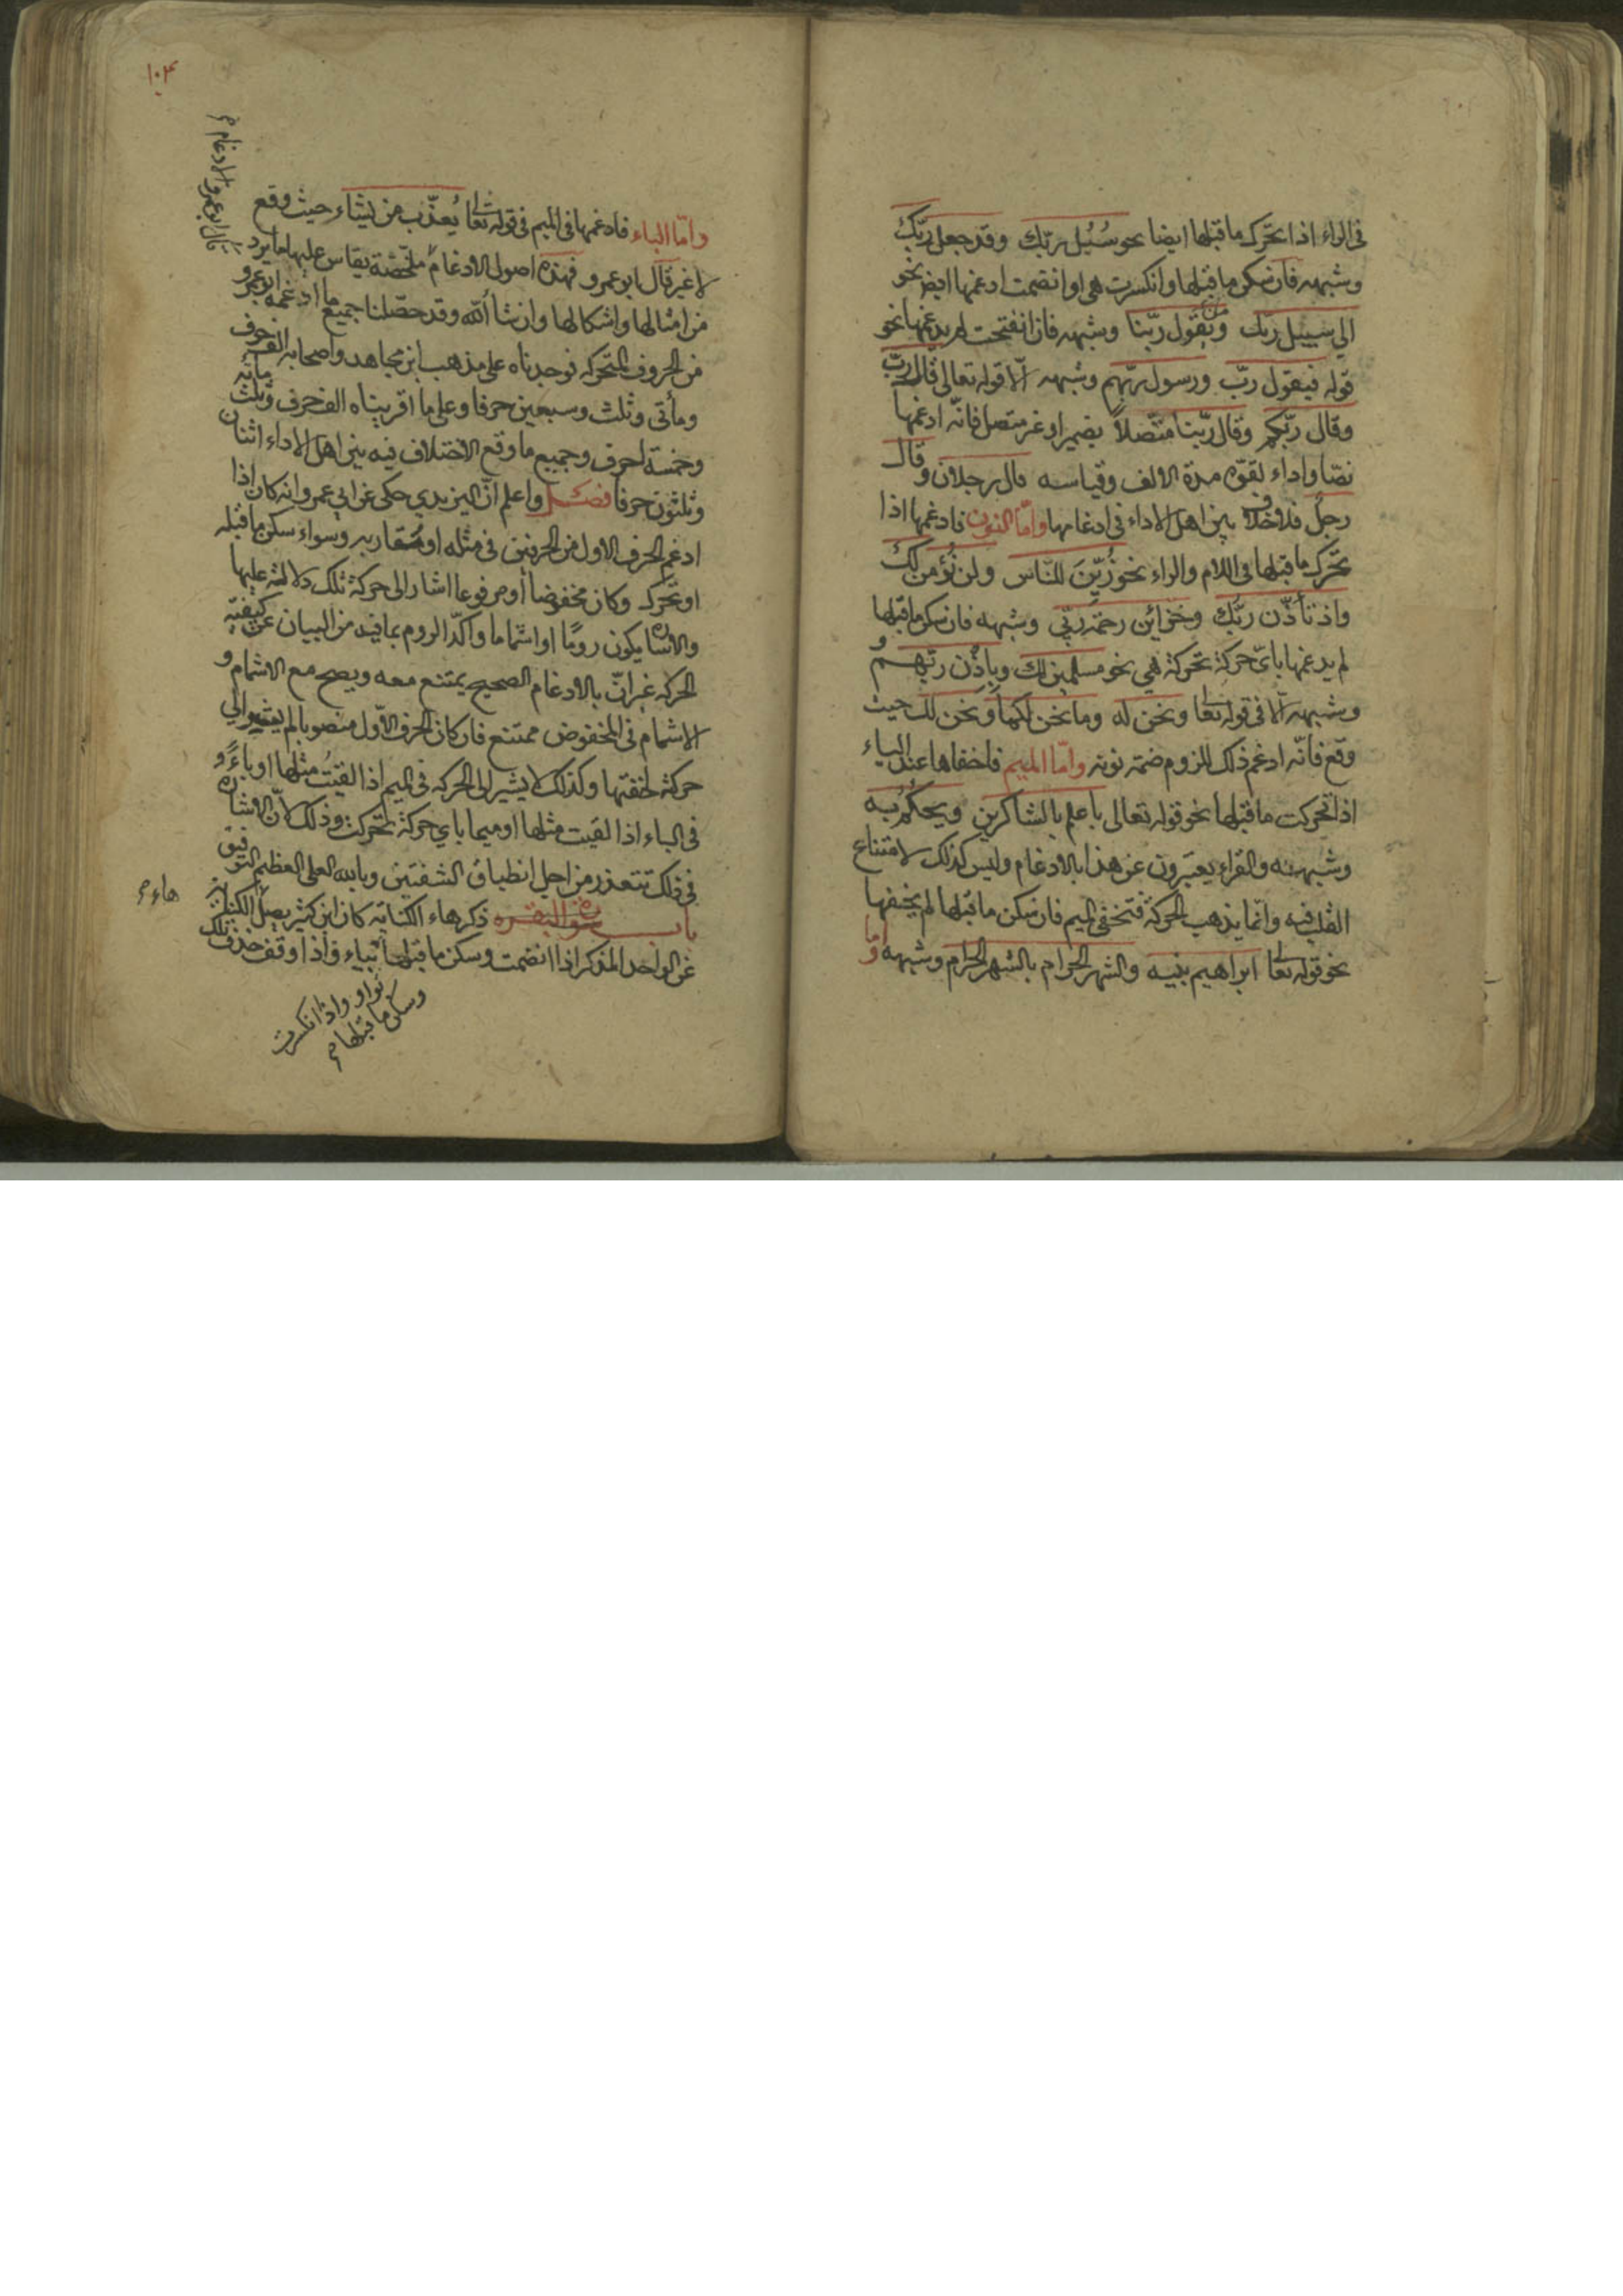 فى الراء اذا تحرك ما قبلها ايضا نحو سُبُل ربّك وقد جعل ربّك
وشبهه فان سكن ما قبلها وانكسرت هى او انضمت ادغمها ايض نحو
الى سبيل ربّك ومن يقول ربّنا وشبهه فان انفتحت لم يدغمها نحو
قوله فيقول ربّ ورسول ربّهم وشبهه الّا قوله تعالى قال ربّ
وقال ربّكم وقال ربّنا متّصلاً بضمير او غير متصل فانّه ادغمها
نصّا واداء لقوّه مدة الالف وقياسه قال رجلان وقال
رجلٌ فلا خلاف بين اهل الاداء فى ادغامها وامّا النون فادغمها اذا
تحرك ما قبلها فى اللام والراء نحو زُيّنَ للنّاس ولن نؤمن لك
واذ تأذّن ربّك وخزائن رحمة ربّى وشبهه فان سكن ما قبلها
لم يدغمها باىّ حركة تحركة هى نحو مسلمين لك وباذْن ربّهم و
وشبهه الّا فى قوله تعا ونحن له وما نحن لكما ونحن لك حيث
وقع فانّه ادغم ذلك للزوم ضمة نونه وامّا الميم فاخفاها عند الباء
اذا تحركت ما قبلها نحو قوله تعالى باعلم بالشاكرين ويحكم به
وشبهه والقراء يعبّرون عن هذا بالادغام وليس كذلك لامتناع
القلب فيه وانّما يذهب الحركة فتخفى الميم فان سكن ما قبلها لم يخفها
نحو قوله تعا ابراهيم بنيه والشهر الحرام بالشهر الحرام وشبهه واما
١٠٣
قال ابو عمرو والادغام
وامّا الباء فادغمها فى الميم فى قوله تعا يُعذّب من يشاء حيث وقع
لا غير قال ابو عمرو فهذه اصول الادغام ملخّصة يقاس عليها ما يرد
من امثالها واشكالها وان شا الله وقد حصّلنا جميع ما ادغمه ابو عمرو
من الحروف المتحركه فوجدناه على مذهب ابن مجاهد واصحابه الف حرف
ومأتى وثلث وسبعين حرفا وعلى ما اقريناه الف حرف وثلث مأئه
وخمسة احرف وجميع ما وقع الاختلاف فيه بين اهل الاداء اثنان
وثلثون حرفا فصل واعلم انّ اليزيدي حكى عن ابي عمرو انه كان اذا
ادغم الحرف الاول من الحرفين فى مثله او مقاربه وسواء سكن ما قبله
او تحرك وكان مخفوضا أو مرفوعا اشار الى حركة تلك دلالة عليها
والاشاره يكون رومًا او اشماما واكدّ الروم بما فيه من البيان عن كيفيّة
الحركه غير انّ بالادغام الصحيح يمتنع معه ويصح مع الاشمام و
الاشمام فى المخفوض ممتنع فان كان الحرف الاّول منصوبا لم يشر الى
حركته لخفتها وكذلك لا يشير الى الحركه فى الميم اذا لقيت مثلها او باءً و
فى الباء اذا لقيت مثلها او ميما باي حركة تحركت وذلك لانّ الاشاره
فى ذلك تتعذر من اجل انطباق الشفتين وبالله العلى العظيم التوفيق
باب سورة البقره ذكر هاء الكنايه كان ابن كثير يصل
هاء
عن الواحد المذكر اذا انضمت وسكن ما قبلها بياء واذا وقف حذف تلك
بواو واذا انكسرت
وسكن ما قبلها